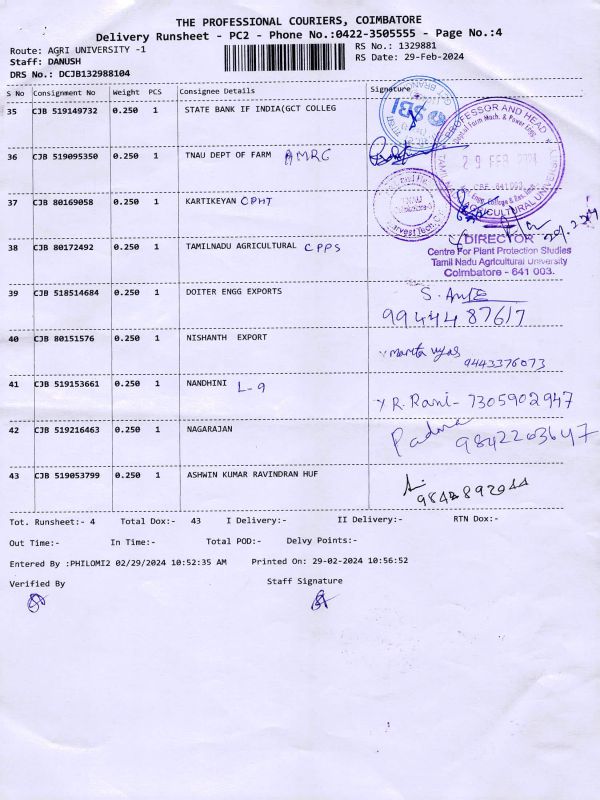 THE PROFESSIONAL COURIERS, COIMBATORE
Delivery Runsheet - PC2 - Phone No.:0422-3505555 - Page No.:4
Route: AGRI UNIVERSITY -1
RS No.: 1329881
Staff: DANUSH
RS Date: 29-Feb-2024
DRS No.: DCJB132988104
S No Consignment No Weight PCS Consignee Details Signature
35 CJB 519149732 0.250 1 STATE BANK IF INDIA(GCT COLLEG
SBI
PROFESSOR AND HEAD
29 FEB 2024
AGRICULTURAL UNIVERSITY
36 CJB 519095350 0.250 1 TNAU DEPT OF FARM AMRC
37 CJB 80169058 0.250 1 KARTIKEYAN CPHT
38 CJB 80172492 0.250 1 TAMILNADU AGRICULTURAL CPPS
DIRECTOR
Centre For Plant Protection Studies
Tamil Nadu Agricultural University
Coimbatore - 641 003.
39 CJB 518514684 0.250 1 DOITER ENGG EXPORTS
9944487617
40 CJB 80151576 0.250 1 NISHANTH EXPORT
9443376073
41 CJB 519153661 0.250 1 NANDHINI L-9
R. Rani - 7305902947
42 CJB 519216463 0.250 1 NAGARAJAN
Padma 9842203647
43 CJB 519053799 0.250 1 ASHWIN KUMAR RAVINDRAN HUF
Tot. Runsheet:- 4 Total Dox:- 43 I Delivery:- II Delivery:- RTN Dox:-
Out Time:- In Time:- Total POD:- Delvy Points:-
Entered By :PHILOMI2 02/29/2024 10:52:35 AM Printed On: 29-02-2024 10:56:52
Verified By Staff Signature